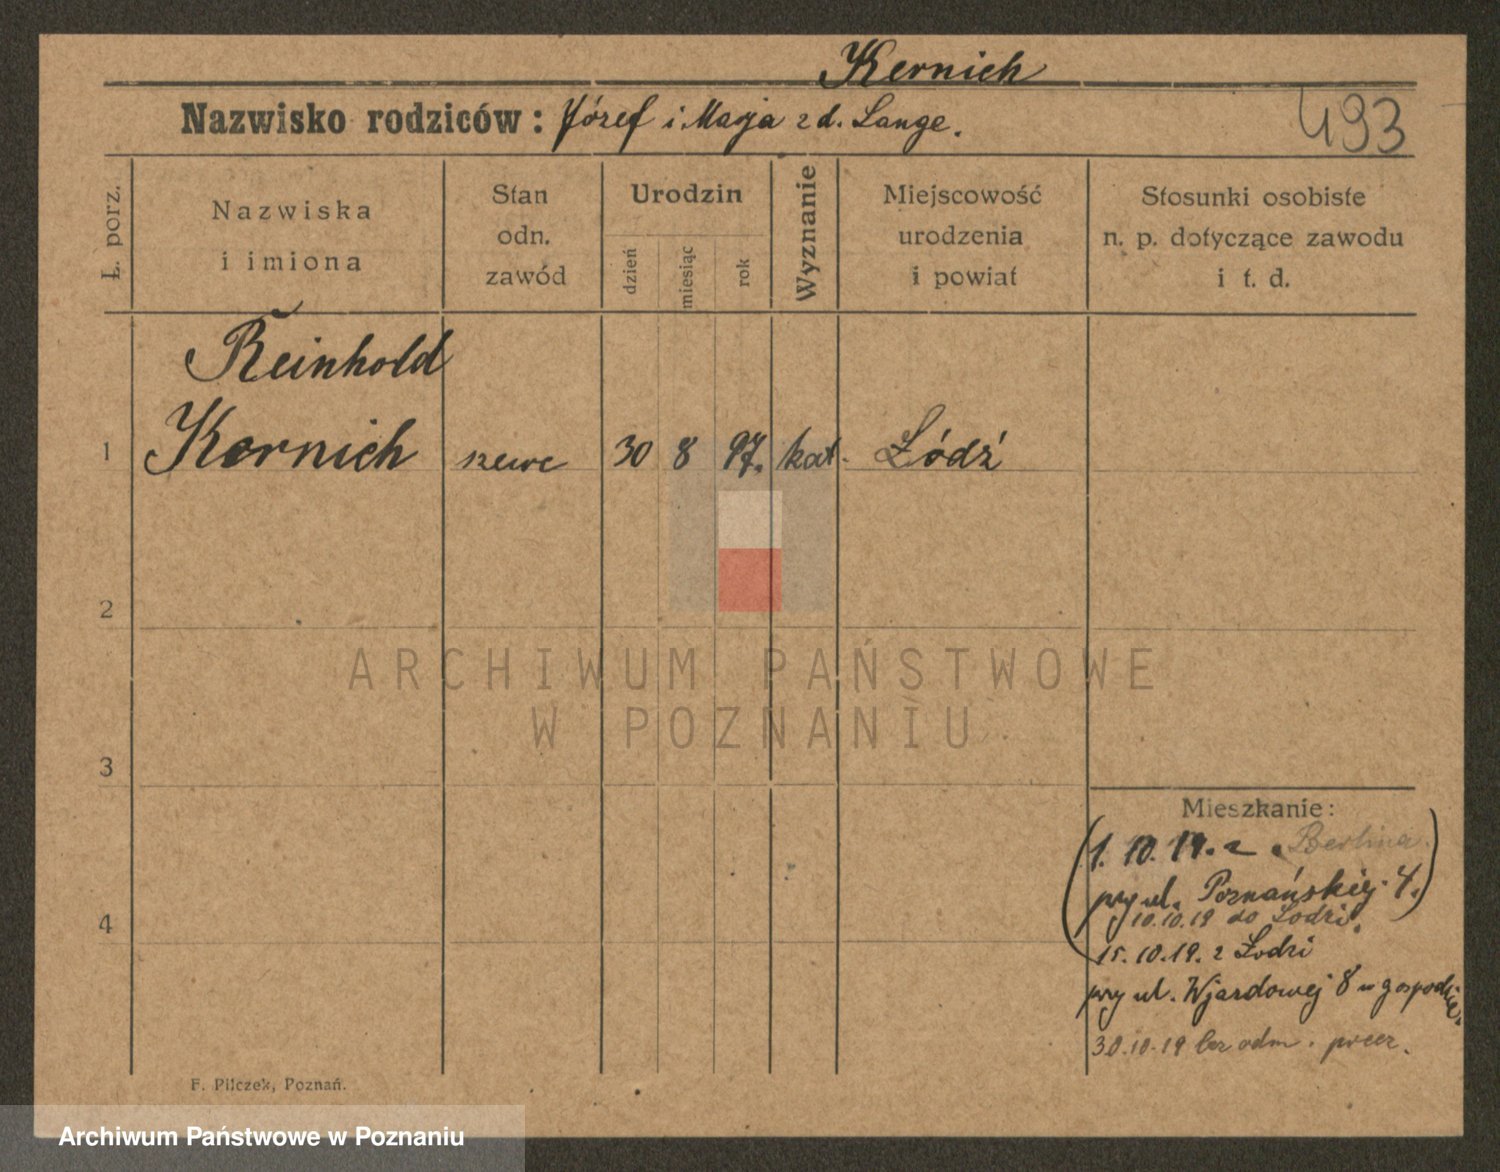 Kernich
Nazwisko rodziców: Józef i Marja z d. Lange.
493
Ł. porz.
Nazwiska
i imiona
Stan
odn.
zawód
Urodzin
dzień
miesiąc
rok
Wyznanie
Miejscowość
urodzenia
i powiat
Stosunki osobiste
n. p. dotyczące zawodu
i t. d.
Reinhold
1 Kernich szewc 30 8 97. kat. Łódź
2
ARCHIWUM PAŃSTWOWE
W POZNANIU
3
Mieszkanie:
1. 10. 19. z Berlina
przy ul. Poznańskiej 4.
10.10.19 do Łodzi.
4
15.10.19. z Łodzi
przy ul. Wjazdowej 8 w gospodzie.
30.10.19 bez odm.
F. Pilczek, Poznań.
Archiwum Państwowe w Poznaniu